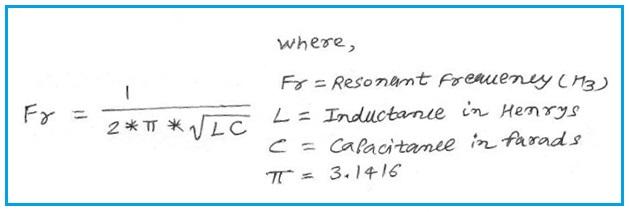 where,
Fr = 1 / 2 * π * √LC
Fr = Resonant Frequency (Hz)
L = Inductance in Henrys
C = Capacitance in farads
π = 3.1416